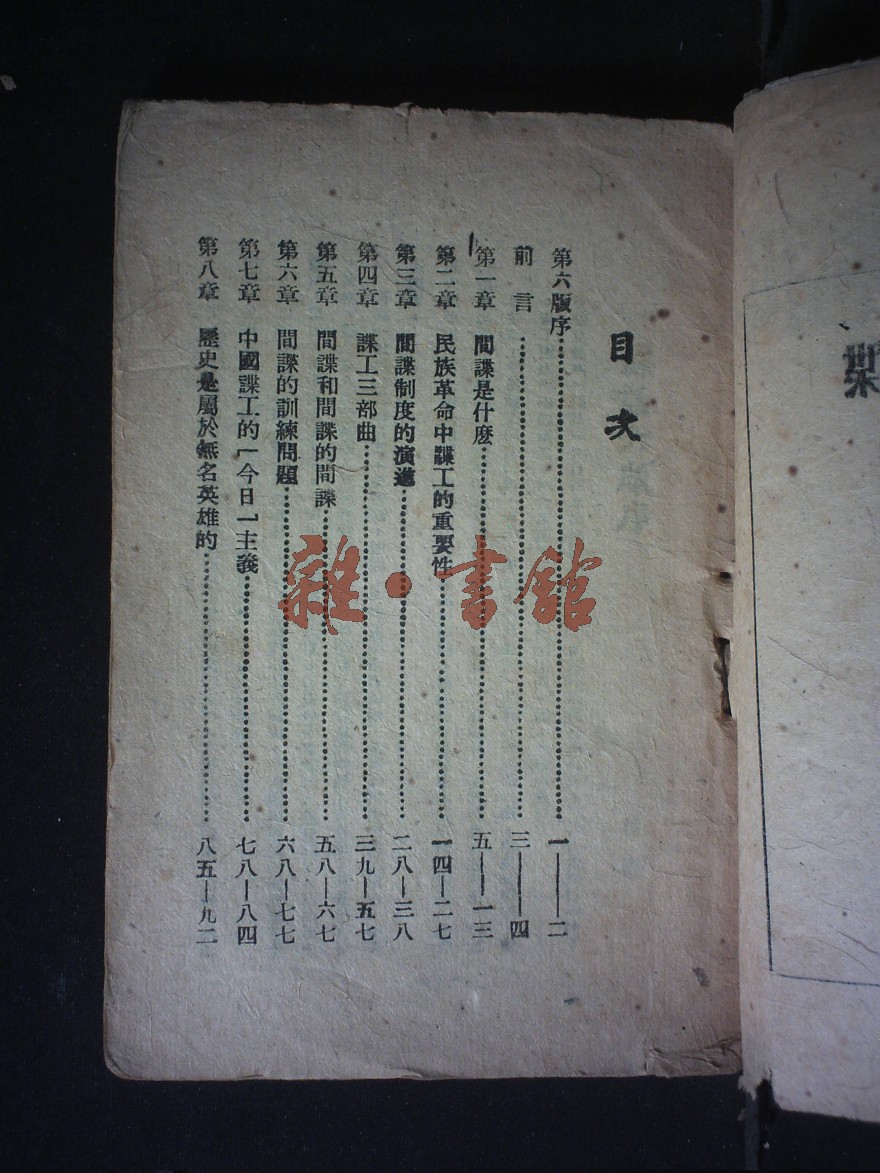 目次
第六版序…………一——二
前言…………三——四
第一章 間諜是什麽…………五——一三
第二章 民族革命中諜工的重要性…………一四—二七
第三章 間諜制度的演進…………二八—三八
第四章 諜工三部曲…………三九—五七
第五章 間諜和間諜的間諜…………五八—六七
第六章 間諜的訓練問題…………六八—七七
第七章 中國諜工的「今日」主義…………七八—八四
第八章 歷史是屬於無名英雄的…………八五—九二
雜·書館